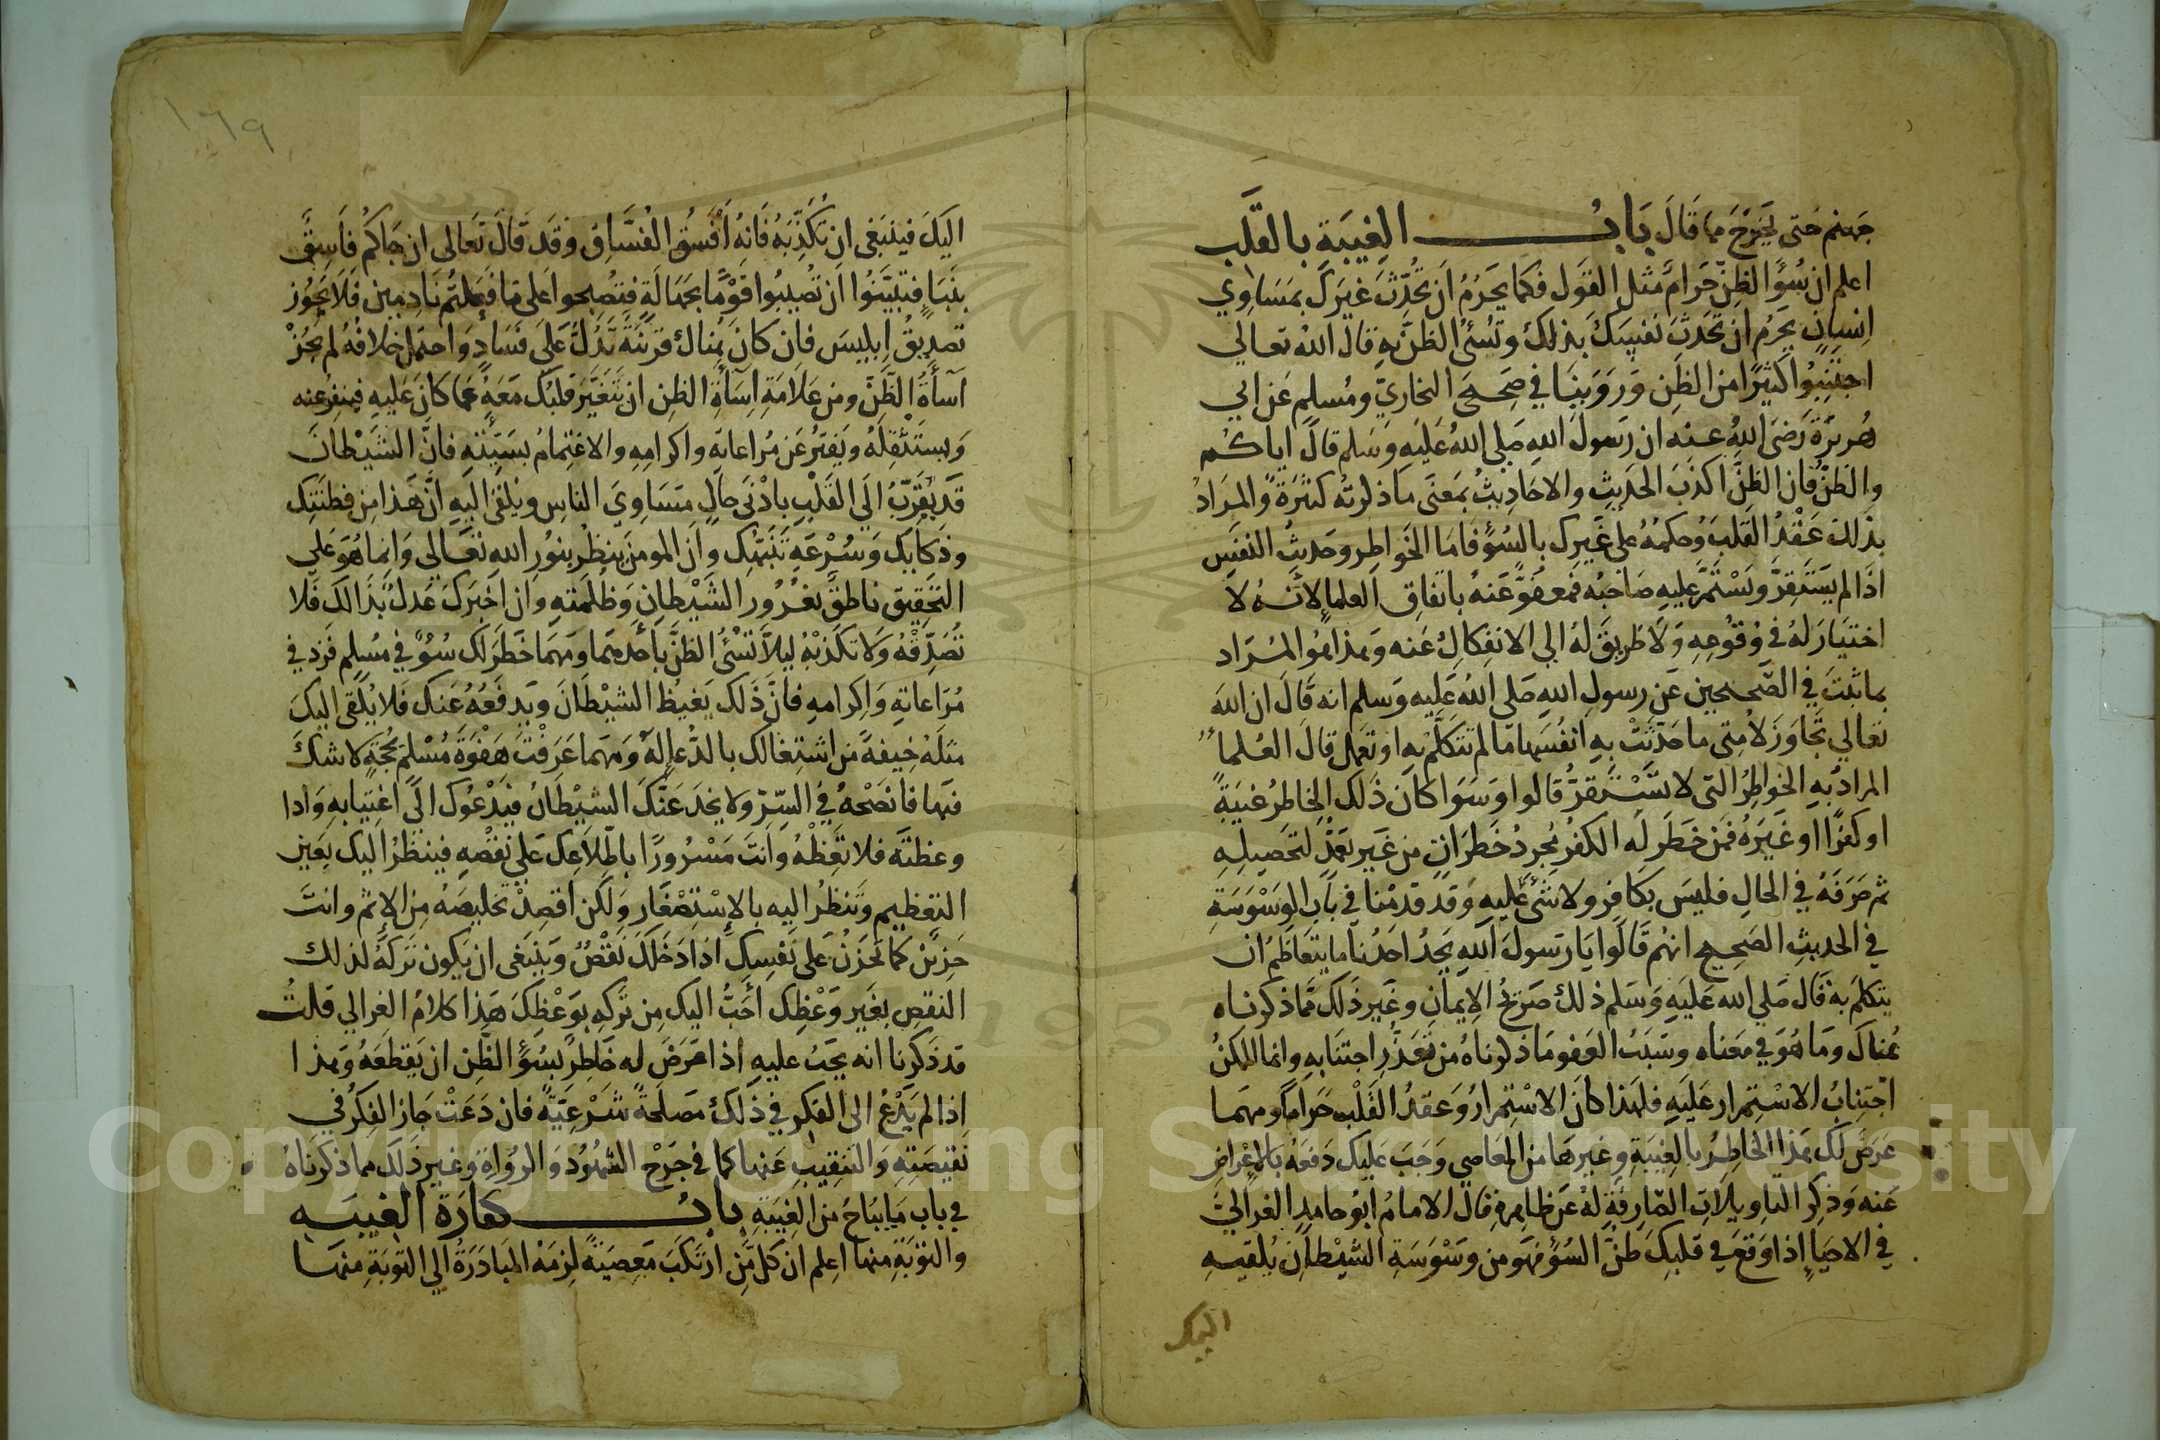 جهنم حتى يخرج مما قال باب الغيبة بالقلب
اعلم ان سُوٓ الظن حرام مثل القول فكما يحرم ان تحدث غيرك بمساوي
انسان يحرم ان تحدث نفسك بذلك وتسئ الظن به قال الله تعالي
اجتنبوا كثيرا من الظن وروينا في صحيحي البخاري ومسلم عن ابي
هريرة رضي الله عنه ان رسول الله صلى الله عليه وسلم قال اياكم
والظن فان الظن اكذب الحديث والاحاديث بمعنى ما ذكرته كثيرة والمراد
بذلك عقد القلب وحكمه على غيرك بالسوٓ فاما الخواطر وحديث النفس
اذا لم يستقر ويستمر عليه صاحبه فمعفو عنه باتفاق العلما لانه لا
اختيار له في وقوعه ولا طريق له الي الانفكاك عنه وهذا هو المراد
بما ثبت في الصحيحين عن رسول الله صلى الله عليه وسلم انه قال ان الله
تعالي تجاوز لامتى ما حدثت به انفسها ما لم تتكلم به او تعمل قال العلما
المراد به الخواطر التى لا تستقر قالوا وسوا كان ذلك الخاطر غيبة
او كفرا او غيره فمن خطر له الكفر مجرد خطران من غير تعمد لتحصيله
ثم صرفه في الحال فليس بكافر ولا شئ عليه وقد قدمنا في باب الوسوسة
في الحديث الصحيح انهم قالوا يا رسول الله يجد احدنا ما يتعاظم ان
يتكلم به قال صلي الله عليه وسلم ذلك صريح الايمان وغير ذلك مما ذكرناه
هناك وما هو في معناه وسبب العفو ما ذكرناه من تعذر اجتنابه وانما الممكن
اجتناب الاستمرار عليه فلهذا كان الاستمرار وعقد القلب حراما ومهما
عرض لك هذا الخاطر بالغيبة وغيرها من المعاصي وجب عليك دفعه بالاعراض
عنه وذكر التاويلات الصارفة له عن ظاهره قال الامام ابو حامد الغزالي
في الاحيا اذا وقع في قلبك ظن السوٓ فهو من وسوسة الشيطان يلقيه
اليك
١٦٩
اليك فينبغى ان تكذبه فانه افسق الفساق وقد قال تعالى ان جاكم فاسق
بنبا فتبينوا ان تصيبوا قوما بجهالة فتصبحوا على ما فعلتم نادمين فلا يجوز
تصديق ابليس فان كان هناك قرينة تدل على فساد واحتمل خلافه لم يجز
اسأة الظن ومن علامة اساة الظن ان تتغير قلبك معه عما كان عليه فينفر عنه
ويستثقله ويفتر عن مراعاته واكرامه والاغتمام بسيئته فان الشيطان
قد يقرب الي القلب بادنى حال مساوي الناس ويلقى اليه ان هذا من فطنتك
وذكايك وسرعة تنبهك وان المومن ينظر بنور الله تعالي وانما هو على
التحقيق ناطق بغرور الشيطان وظلمته وان اخبرك عدل بذالك فلا
تصدقه ولا تكذبه ليلا تسئ الظن باحدهما ومهما خطر لك سوٓ في مسلم فزد في
مراعاته واكرامه فان ذلك يغيظ الشيطان ويدفعه عنك فلا يلقى اليك
مثله خيفة من اشتغالك بالدعا له ومهما عرفت هفوة مسلم بحجة لا شك
فيها فانصحه في السر ولا يخدعنك الشيطان فيدعوك الى اغتيابه واذا
وعظته فلا تعظه وانت مسرورا باطلاعك على نقصه فينظر اليك بعين
التعظيم وتنظر اليه بالاستصغار ولكن اقصد تخليصه من الاثم وانت
حزين كما تحزن على نفسك اذا دخلك نقص وينبغى ان يكون تركه لذلك
النقص بغير وعظك احب اليك من تركه بوعظك هذا كلام الغزالي قلت
قد ذكرنا انه يجب عليه اذا عرض له خاطر بسوٓ الظن ان يقطعه وهذا
اذا لم يدع الى الفكر في ذلك مصلحة شرعية فان دعت جاز الفكر في
نقيصته والتنقيب عنها كما في جرح الشهود والرواة وغير ذلك مما ذكرناه
في باب ما يباح من الغيبة باب كفارة الغيبه
والتوبة منها اعلم ان كل من ارتكب معصية لزمه المبادرة الي التوبة منها
Copyright © King Saud University